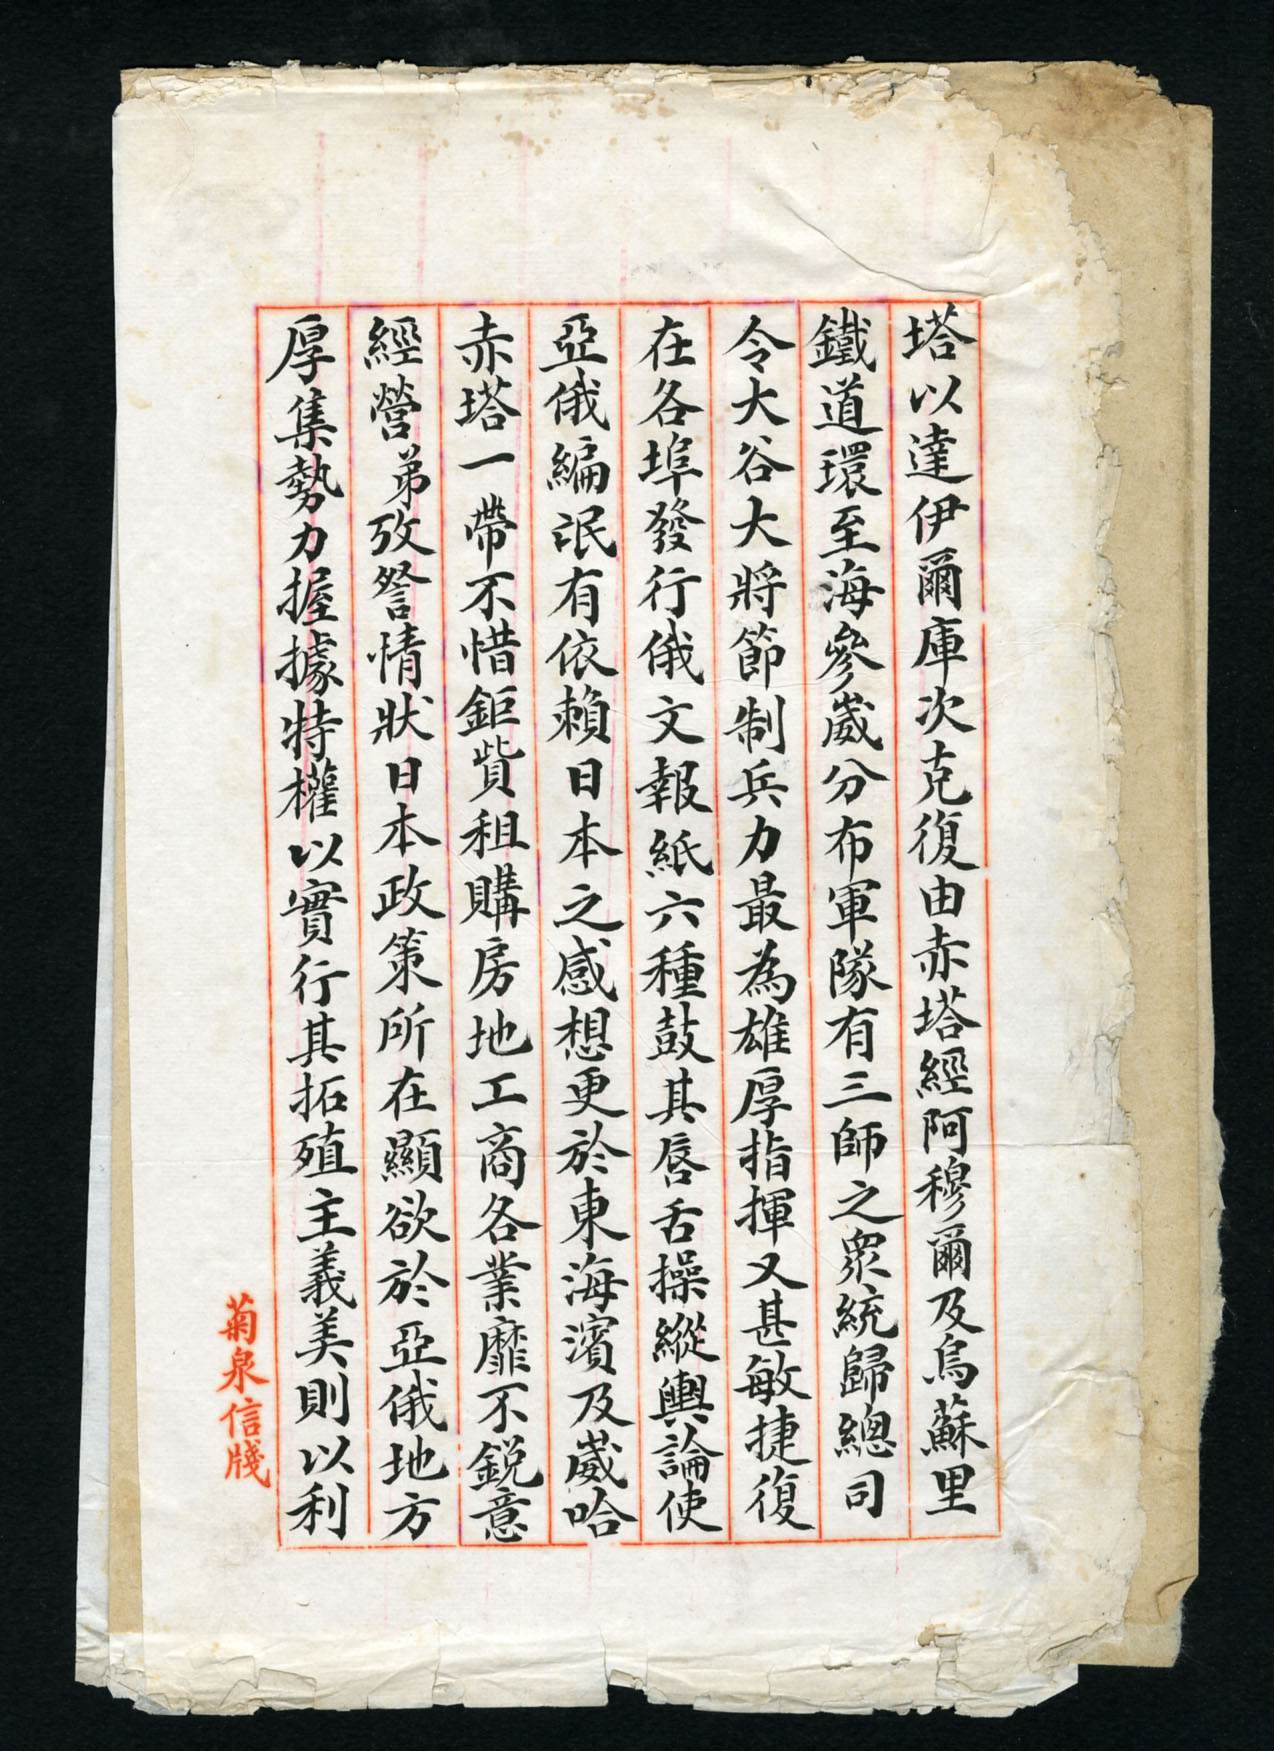 塔以達伊爾庫次克復由赤塔經阿穆爾及烏蘇里
鐵道環至海參崴分布軍隊有三師之眾統歸總司
令大谷大將節制兵力最為雄厚指揮又甚敏捷復
在各埠發行俄文報紙六種鼓其唇舌操縱輿論使
亞俄編氓有依賴日本之感想更於東海濱及崴哈
赤塔一帶不惜鉅貲租購房地工商各業靡不鋭意
經營弟攷詧情狀日本政策所在顯欲於亞俄地方
厚集勢力握據特權以實行其拓殖主義美則以利
菊泉信牋